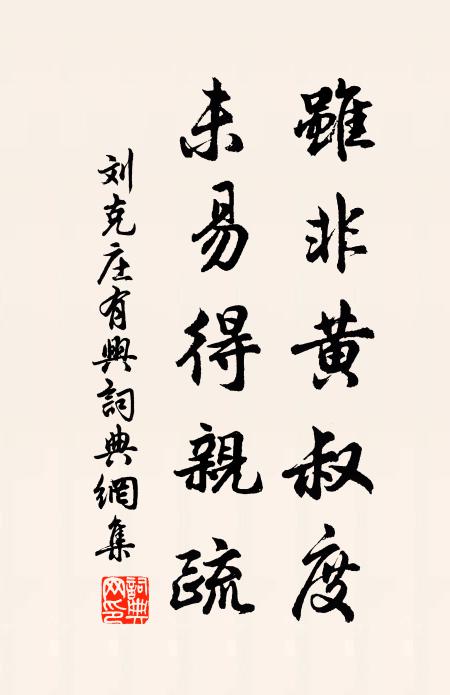 雖非黃叔度
未易得親疏
刘克庄有興詞典網集
詞典網印